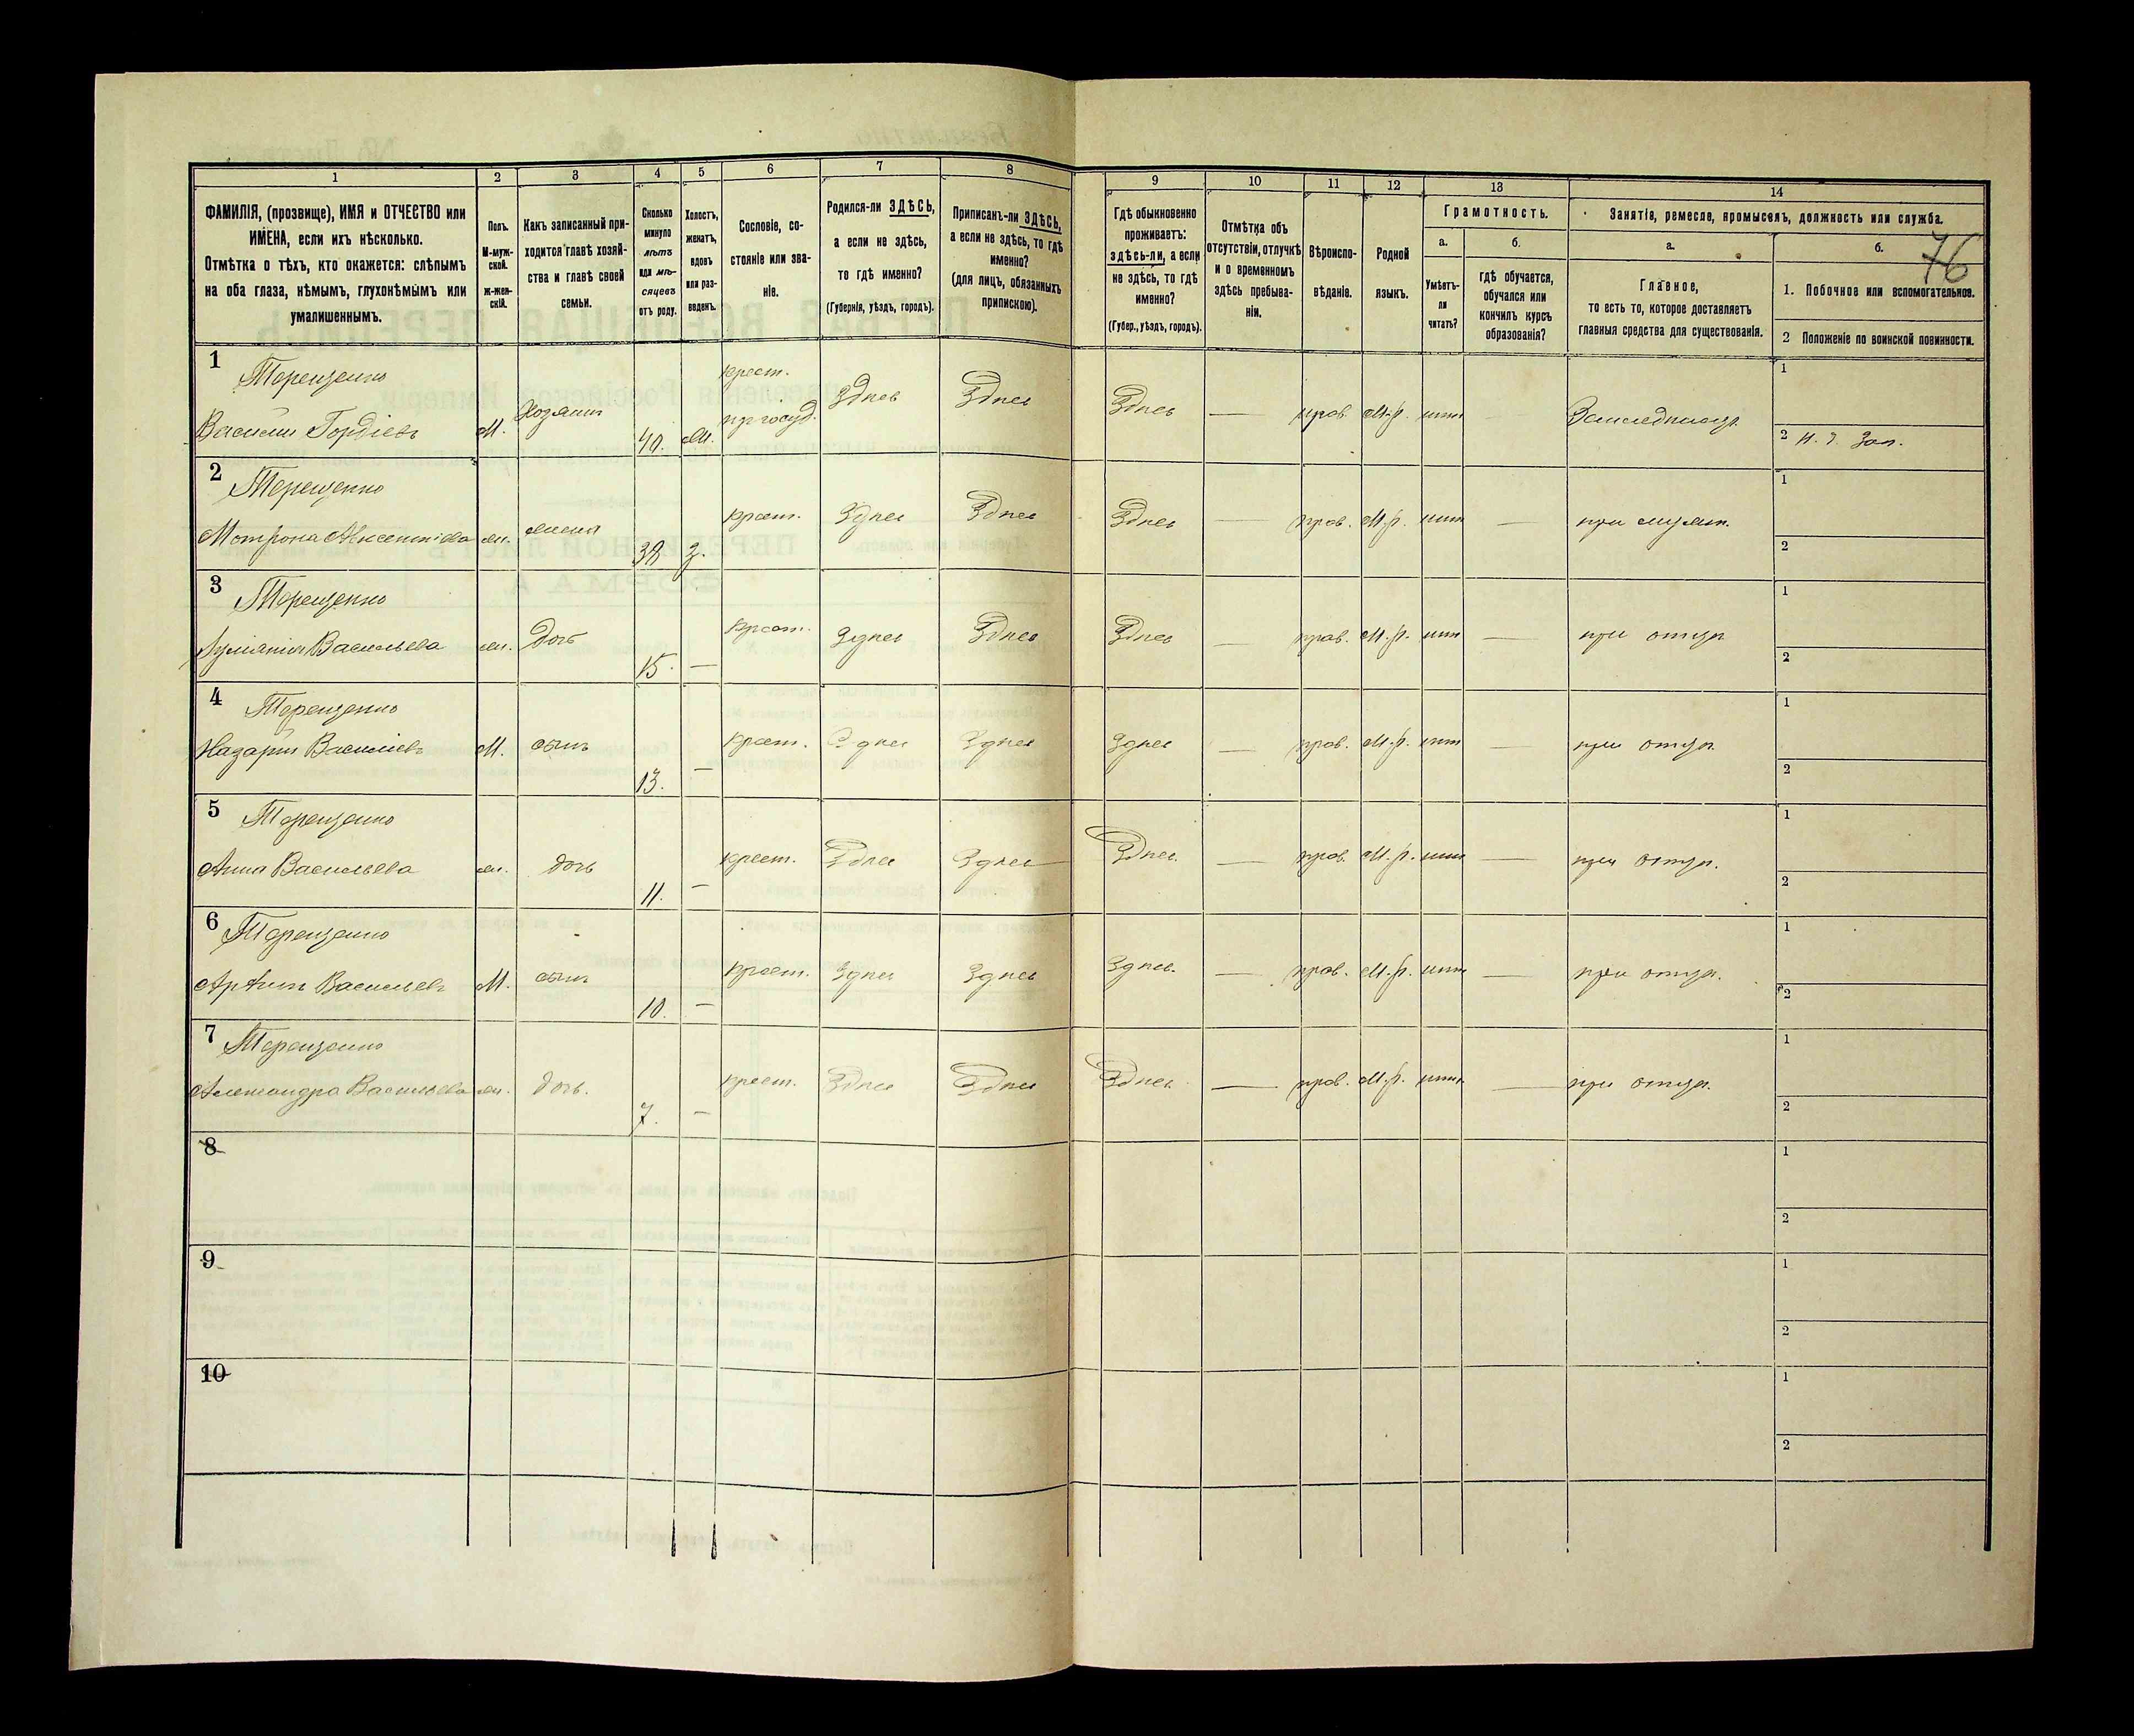 1 2 3 4 5 6 7 8 9 10 11 12 13 14
ФАМИЛІЯ, (прозвище), ИМЯ и ОТЧЕСТВО или
ИМЕНА, если ихъ нѣсколько.
Отмѣтка о тѣхъ, кто окажется: слѣпымъ
на оба глаза, нѣмымъ, глухонѣмымъ или
умалишеннымъ.
Полъ.
М-муж-
ской.
ж-жен-
скій.
Какъ записанный при-
ходится главѣ хозяй-
ства и главѣ своей
семьи.
Сколько
минуло
лѣтъ
или мѣ-
сяцевъ
отъ роду.
Холостъ,
женатъ,
вдовъ
или раз-
веденъ.
Сословіе, со-
стояніе или зва-
ніе.
Родился-ли ЗДѢСЬ,
а если не здѣсь,
то гдѣ именно?
(Губернія, уѣздъ, городъ).
Приписанъ-ли ЗДѢСЬ,
а если не здѣсь, то гдѣ
именно?
(для лицъ, обязанныхъ
припискою).
Гдѣ обыкновенно
проживаетъ:
здѣсь-ли, а если
не здѣсь, то гдѣ
именно?
(Губер., уѣздъ, городъ).
Отмѣтка объ
отсутствіи, отлучкѣ
и о временномъ
здѣсь пребыва-
ніи.
Вѣроиспо-
вѣданіе.
Родной
языкъ.
Грамотность.
а.
Умѣетъ-
ли
читать?
б.
гдѣ обучается,
обучался или
кончилъ курсъ
образованія?
Занятія, ремесло, промыселъ, должность или служба.
а.
Главное,
то есть то, которое доставляетъ
главныя средства для существованія.
б.
76
1. Побочное или вспомогательное.
2 Положеніе по воинской повинности.
1 Терещенко крест. 1
Василій Гордіевъ М. Хозяинъ 40. пр госуд. Здѣсь Здѣсь Здѣсь — прав. М.р. нѣтъ
2
2 Терещенко 1
Мотрона ж. жена 38 З. крест. Здѣсь Здѣсь Здѣсь — прав. М.р. нѣтъ — при мужѣ.
2
3 Терещенко 1
Васильева ж. дочь 15. — крест. Здѣсь Здѣсь Здѣсь — прав. М.р. нѣтъ — при отцѣ
2
4 Терещенко 1
Назарій Василіевъ М. сынъ 13. — крест. Здѣсь Здѣсь Здѣсь — прав. М.р. нѣтъ — при отцѣ
2
5 Терещенко 1
Анна Васильева ж. дочь 11. — крест. Здѣсь Здѣсь Здѣсь. — прав. М.р. нѣтъ — при отцѣ.
2
6 Терещенко 1
Васильевъ М. сынъ 10. — крест. Здѣсь Здѣсь Здѣсь. — прав. М.р. нѣтъ — при отцѣ.
2
7 Терещенко 1
Александра Васильева ж. дочь. 7. — крест. Здѣсь Здѣсь Здѣсь — прав. М.р. нѣтъ — при отцѣ.
2
8 1
2
9 1
2
10 1
2